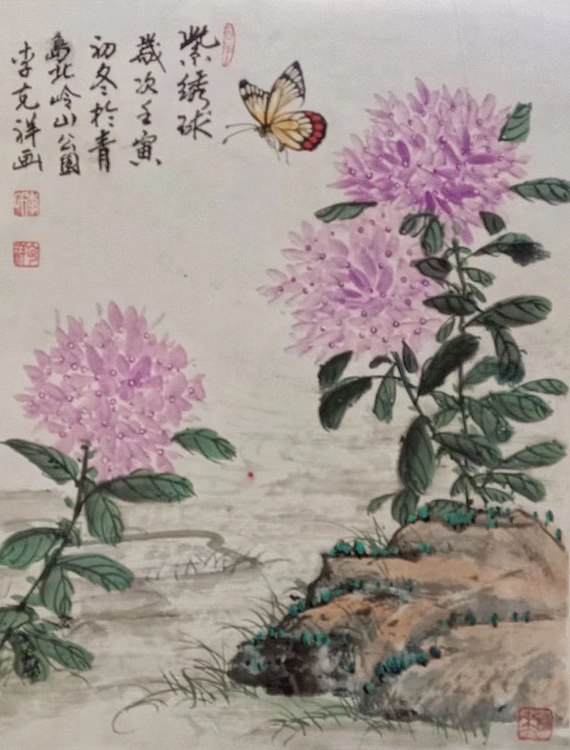 紫绣球
岁次壬寅
初冬於青
岛北岭山公园
李克祥画